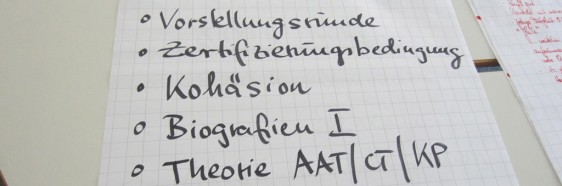 • Vorstellungsrunde
• Zertifizierungsbedingung
• Kohäsion
• Biografien I
• Theorie AAT/CT/KP